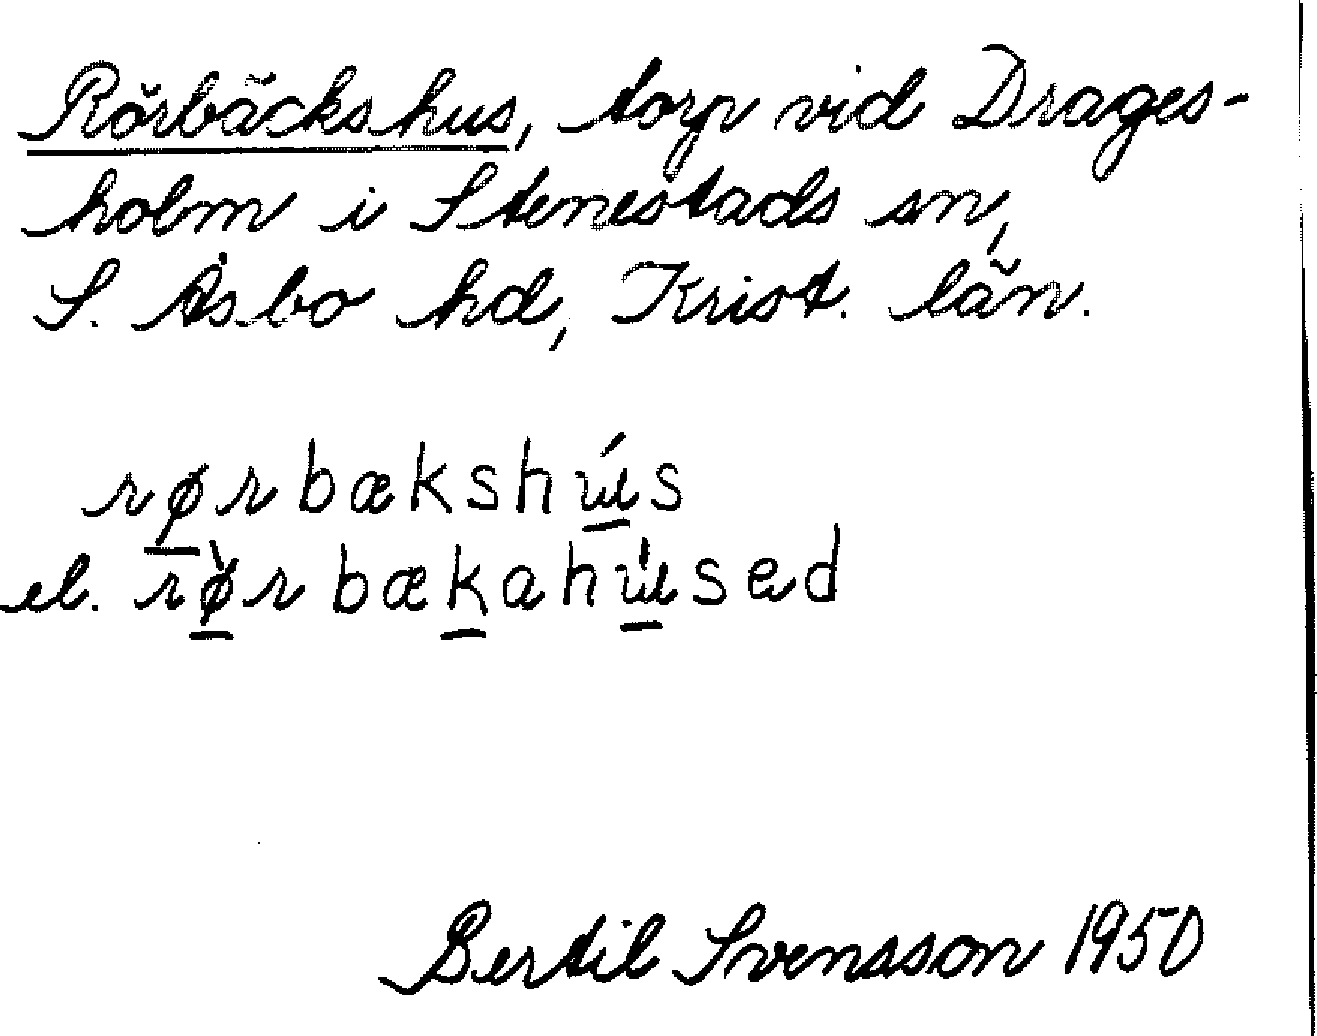 Rörbäckshus, torp vid Drages-
holm i Stenestads sn,
S. Åsbo hd, Krist. län.
rørbækshús
el. rø̀rbækahúsed
Bertil Svensson 1950